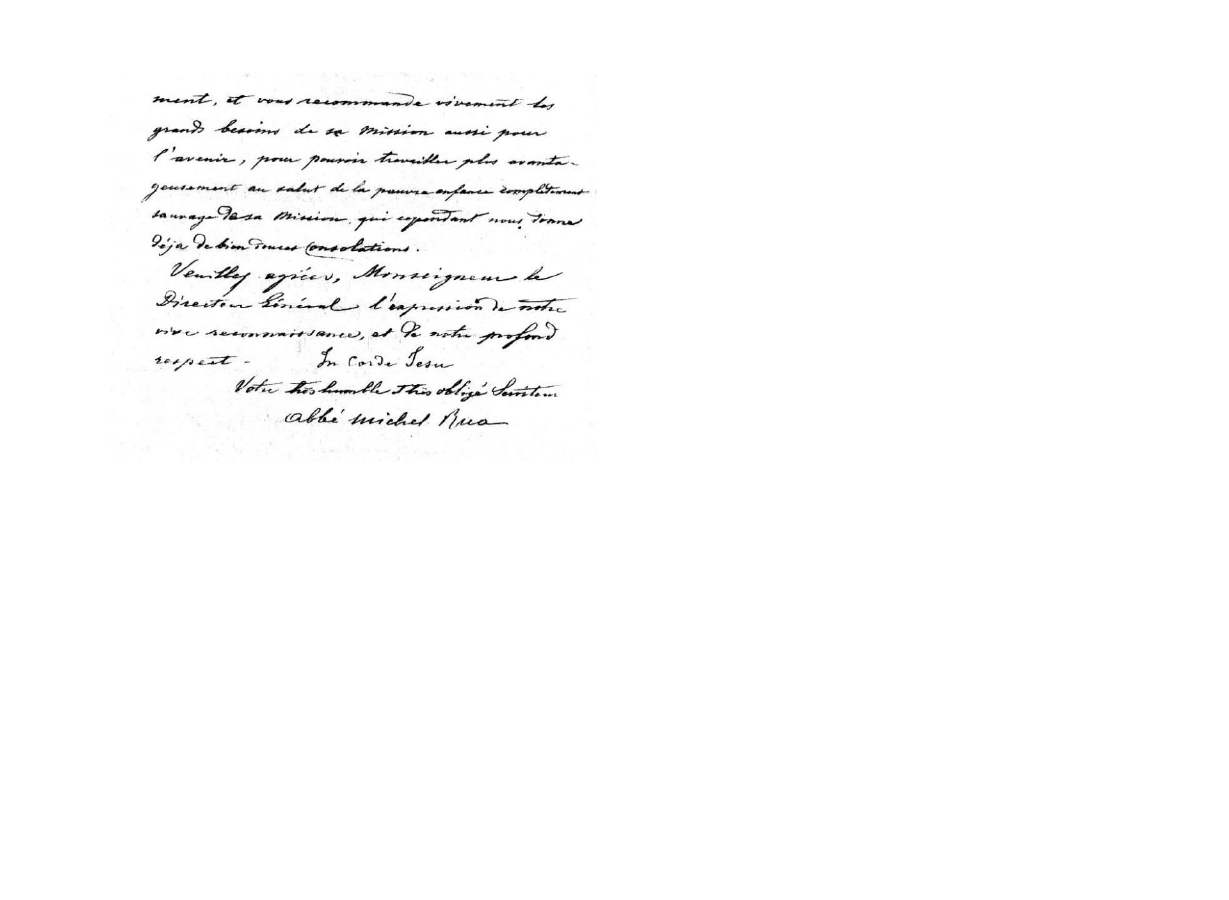 ment, et vous recommande vivement les
grands besoins de sa Mission aussi pour
l'avenir, pour pouvoir travailler plus avanta-
geusement au salut de la pauvre enfance complètement
sauvage de sa Mission, qui cependant nous donne
déja de bien douces Consolations.
Veuillez agréer, Monseigneur le
Directeur Général l'expression de notre
vive reconnaissance, et de notre profond
respect - In Corde Jesu
Votre très humble et très obligé Serviteur
Abbé Michel Rua